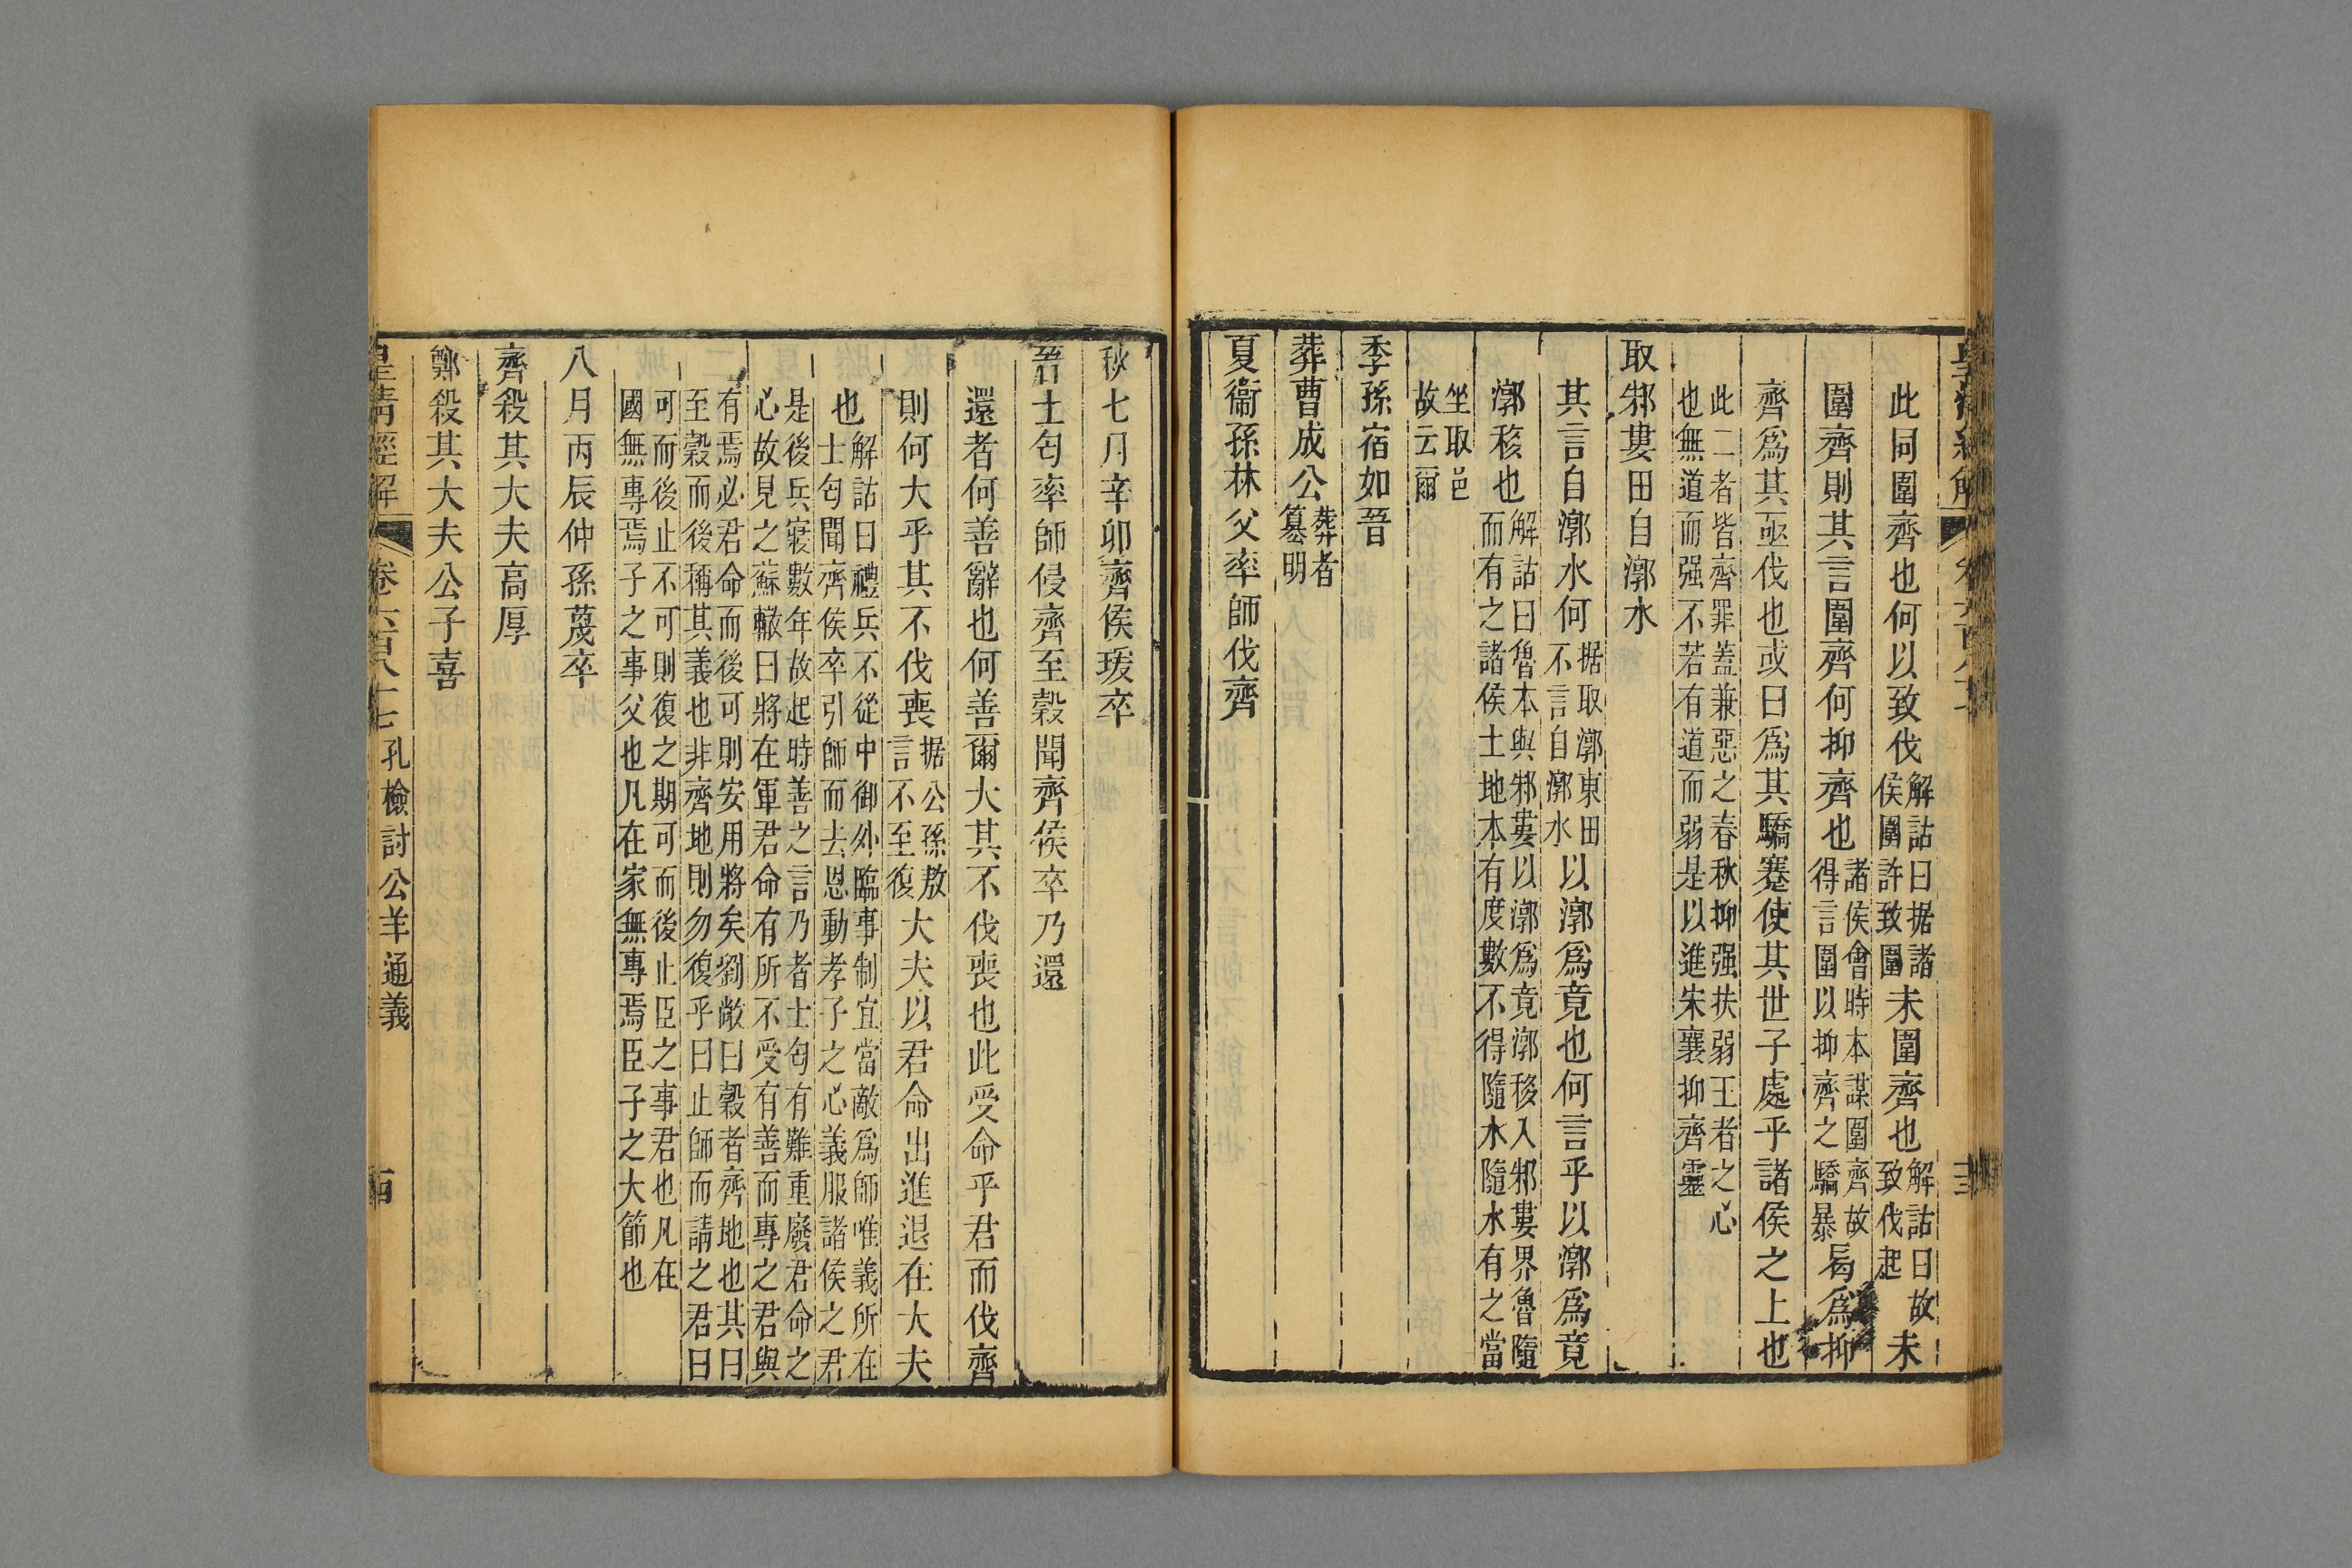 此同圍齊也何以致伐解詁曰据諸侯圍許致圍未圍齊也解詁曰故未致伐起
圍齊則其言圍齊何抑齊也諸侯會時本謀圍齊故得言圍以抑齊之驕暴曷爲抑
齊爲其亟伐也或曰爲其驕蹇使其世子處乎諸侯之上也
此二者皆齊罪蓋兼惡之春秋抑强扶弱王者之心也無道而强不若有道而弱是以進宋襄抑齊靈
取邾婁田自漷水
其言自漷水何据取漷東田不言自漷水以漷爲竟也何言乎以漷爲竟
漷移也解詁曰魯本與邾婁以漷爲竟漷移入邾婁界魯隨而有之諸侯土地本有度數不得隨水隨水有之當
坐取邑故云爾
季孫宿如晉
葬曹成公葬者篡明
夏衞孫林父率師伐齊
秋七月辛卯齊侯瑗卒
晉士匄率師侵齊至穀聞齊侯卒乃還
還者何善辭也何善爾大其不伐喪也此受命乎君而伐齊
則何大乎其不伐喪据公孫敖言不至復大夫以君命出進退在大夫
也解詁曰禮兵不從中御外臨事制宜當敵爲師唯義所在士匄聞齊侯卒引師而去恩動孝子之心義服諸侯之君
是後兵寢數年故起時善之言乃者士匄有難重廢君命之心故見之蘇轍曰將在軍君命有所不受有善而專之君與
有焉必君命而後可則安用將矣劉敞曰穀者齊地也其曰至穀而後稱其義也非齊地則勿復乎曰止師而請之君曰
可而後止不可則復之期可而後止臣之事君也凡在國無專焉子之事父也凡在家無專焉臣子之大節也
八月丙辰仲孫蔑卒
齊殺其大夫高厚
鄭殺其大夫公子喜
皇清經解 卷六百八十七 孔檢討公羊通義